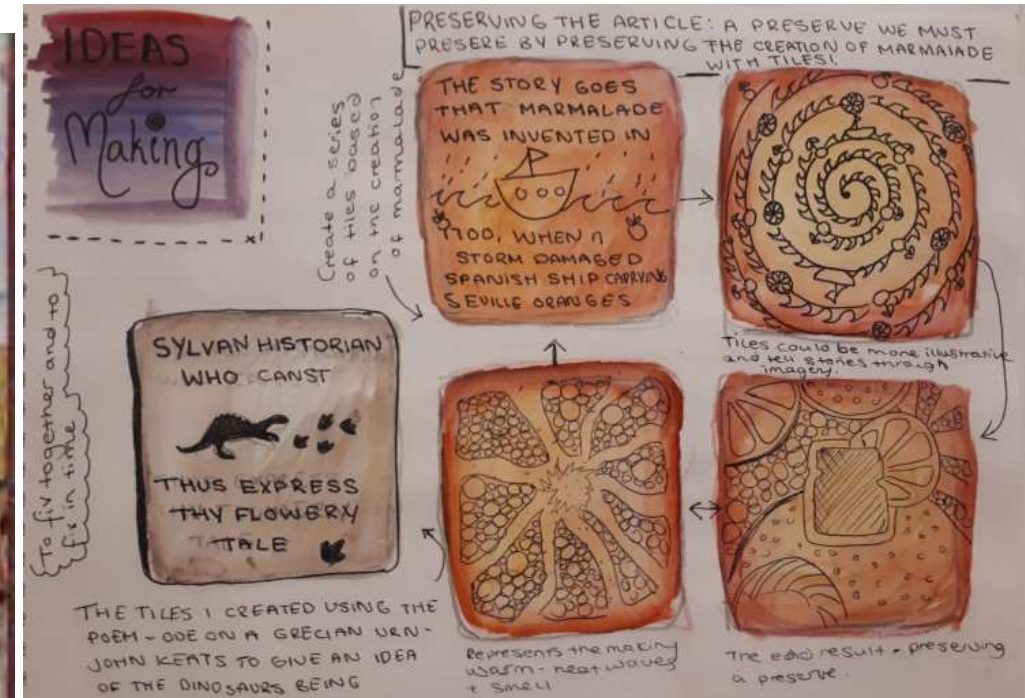 IDEAS
for
Making
PRESERVING THE ARTICLE: A PRESERVE WE MUST
PRESERE BY PRESERVING THE CREATION OF MARMALADE
WITH TILES!
Create a series
of tiles based
on the creation
of marmalade
THE STORY GOES
THAT MARMALADE
WAS INVENTED IN
1700, WHEN A
STORM DAMAGED
SPANISH SHIP CARRYING
SEVILLE ORANGES
Tiles could be more illustrative
and tell stories through
imagery.
To fix together and to
fix in time
SYLVAN HISTORIAN
WHO CANST
THUS EXPRESS
THY FLOWERY
TALE
THE TILES I CREATED USING THE
POEM - ODE ON A GRECIAN URN -
JOHN KEATS TO GIVE AN IDEA
OF THE DINOSAURS BEING
Represents the making
warm - heat waves
+ smell
The end result - preserving
a preserve.